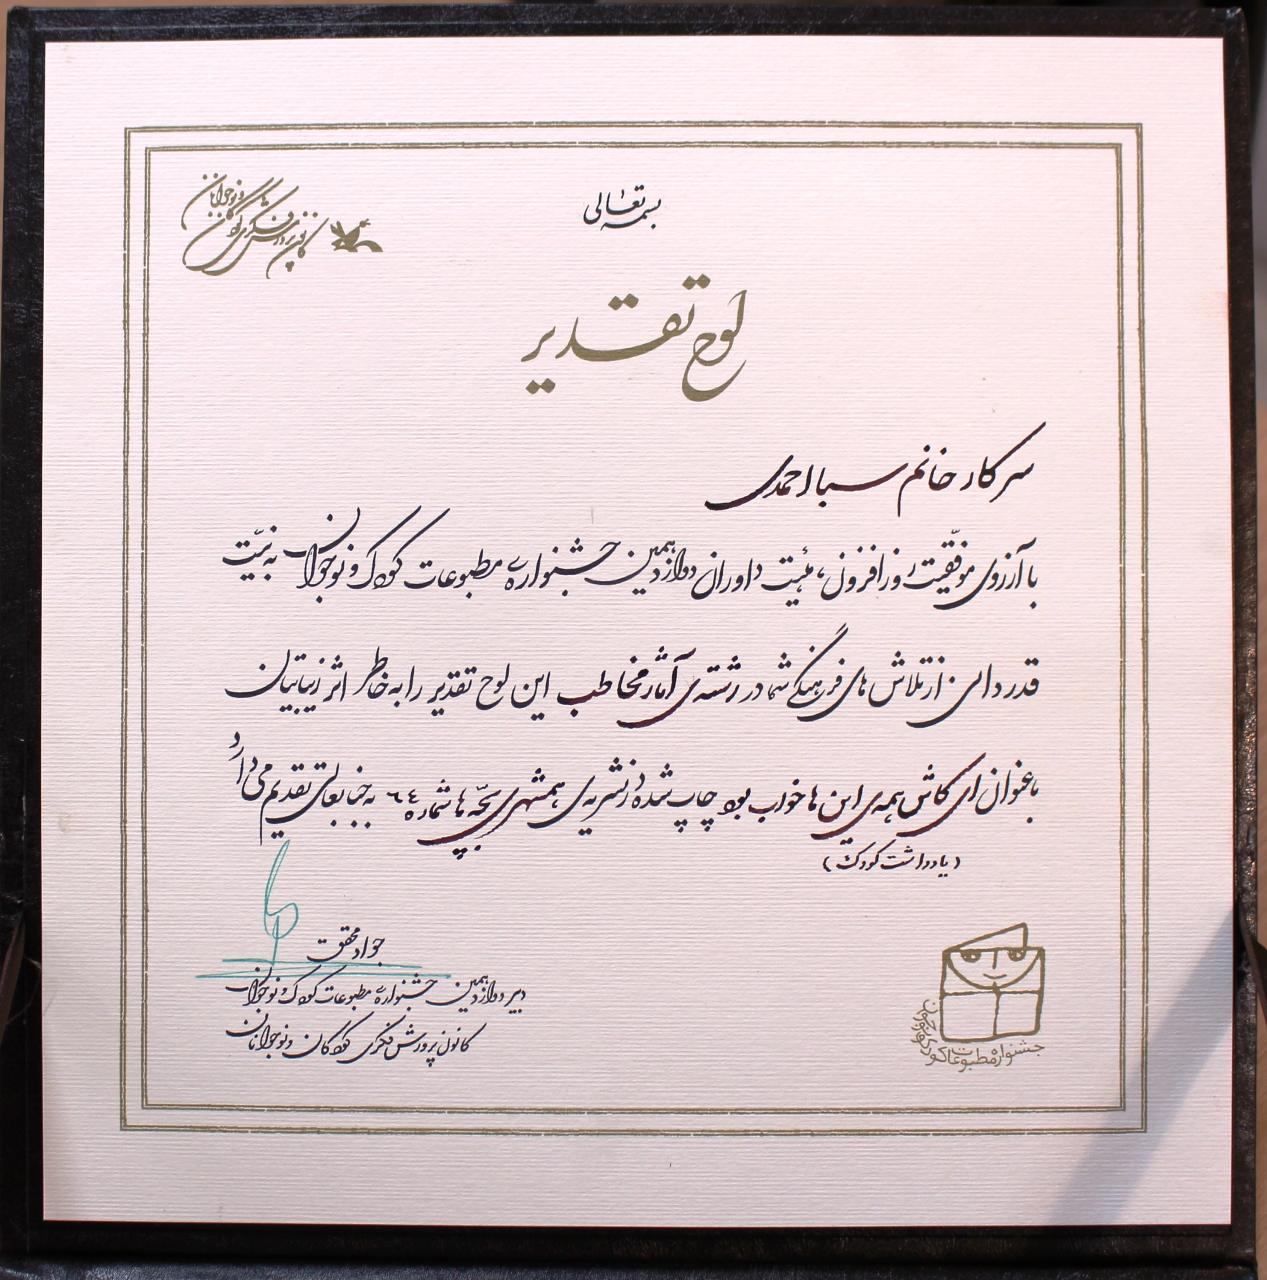 بسمه تعالی
کانون پرورش فکری کودکان و نوجوانان
لوح تقدیر
سرکار خانم سبا احمدی
با آرزوی موفقیت روزافزون، هیئت داوران دوازدهمین جشنواره‌ی مطبوعات کودک و نوجوان به نیّت
قدردانی از تلاش های فرهنگی شما در رشته‌ی آثار مخاطب این لوح تقدیر را به خاطر اثر زیبایتان
با عنوان ای کاش همه‌ی این ها خواب بود چاپ شده در نشریه‌ی همشهری بچّه ها شماره ۶۴ به جنابعالی تقدیم می دارد
(یادداشت کودک)
جواد محقق
دبیر دوازدهمین جشنواره‌ی مطبوعات کودک و نوجوان
کانون پرورش فکری کودکان و نوجوانان
جشنواره مطبوعات کودک و نوجوان